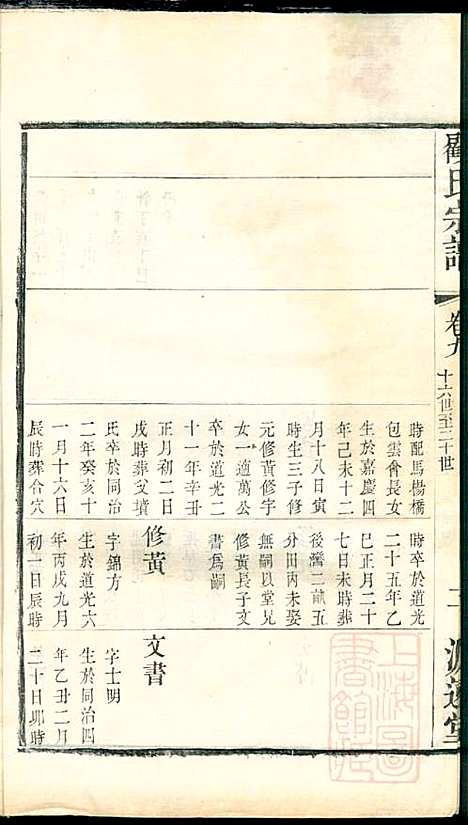 顧氏宗譜
卷九
十六世至二十世
二
源遠堂
時配馬楊橋
包雲會長女
生於嘉慶四
年己未十二
月十八日寅
時生三子修
元修黃修字
女一適萬公
卒於道光二
十一年辛丑
正月初二日
戌時葬父墳
氏卒於同治
二年癸亥十
一月十六日
辰時葬合穴
時卒於道光
二十五年乙
巳正月二十
七日未時葬
後灣二畝五
分田丙未娶
無嗣以堂兄
修黃長子文
書為嗣
修黃
字錦方
生於道光六
年丙戌九月
初一日辰時
文書
字士明
生於同治四
年乙丑二月
二十日卯時
上海圖書館藏